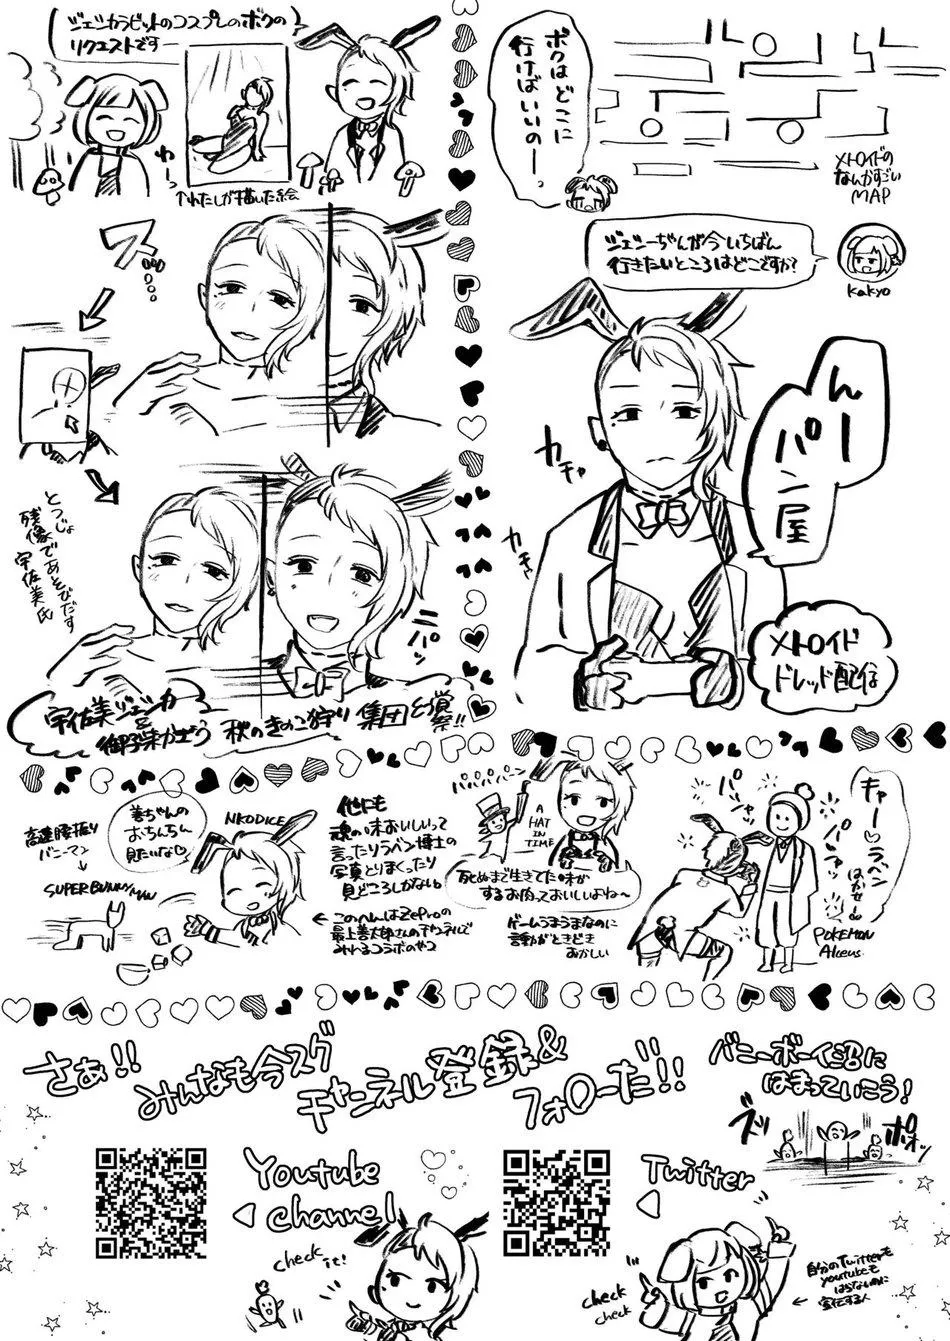 ジェシカラビットのコスプレのボクの
リクエストですー
わーっ
↑わたしが描いた絵
ボクはどこに
行けばいいのー
メトロイドの
なんかすごい
MAP
ジェシーぢんが今いちばん
行きたいところはどこですか?
kakyo
んー
パン屋
カチャ
カチャ
メトロイド
ドレッド配信
ス…
とつじょ
残像であそびだす
宇佐美氏
ニパッ
宇佐美ジェシカ
&
秋のきのこ狩り
集団幻覚祭!!
高速腰振り
バニーマン
SUPER BUNNY MAN
善ちゃんの
おちんちん
見たいな♡
NKODICE
他にも
魂の味おいしいって
言ったりラベン博士の
写真とりまくったり
見どころしかない。
←このへんはZeproの
最上善太郎さんのチャンネルで
みれるコラボのやつ
パパパパーン
A
HAT
IN
TIME
死ぬまで生きてた味が
するお肉っておいしいよね〜
ゲームうまうまなのに
言動がときどき
おかしい
パシャ
パシャッ
キャー♡ラベン
はかせー
POKEMON
Alceus
さぁ!!
みんなも今スグ
チャンネル登録&
フォローだ!!
バニーボーイ沼に
はまっていこう!
ズッ
ポオッ
Youtube
channel
check
it!
Twitter
check
check
自分のTwitterも
youtubeも
はらないのに
宣伝する人